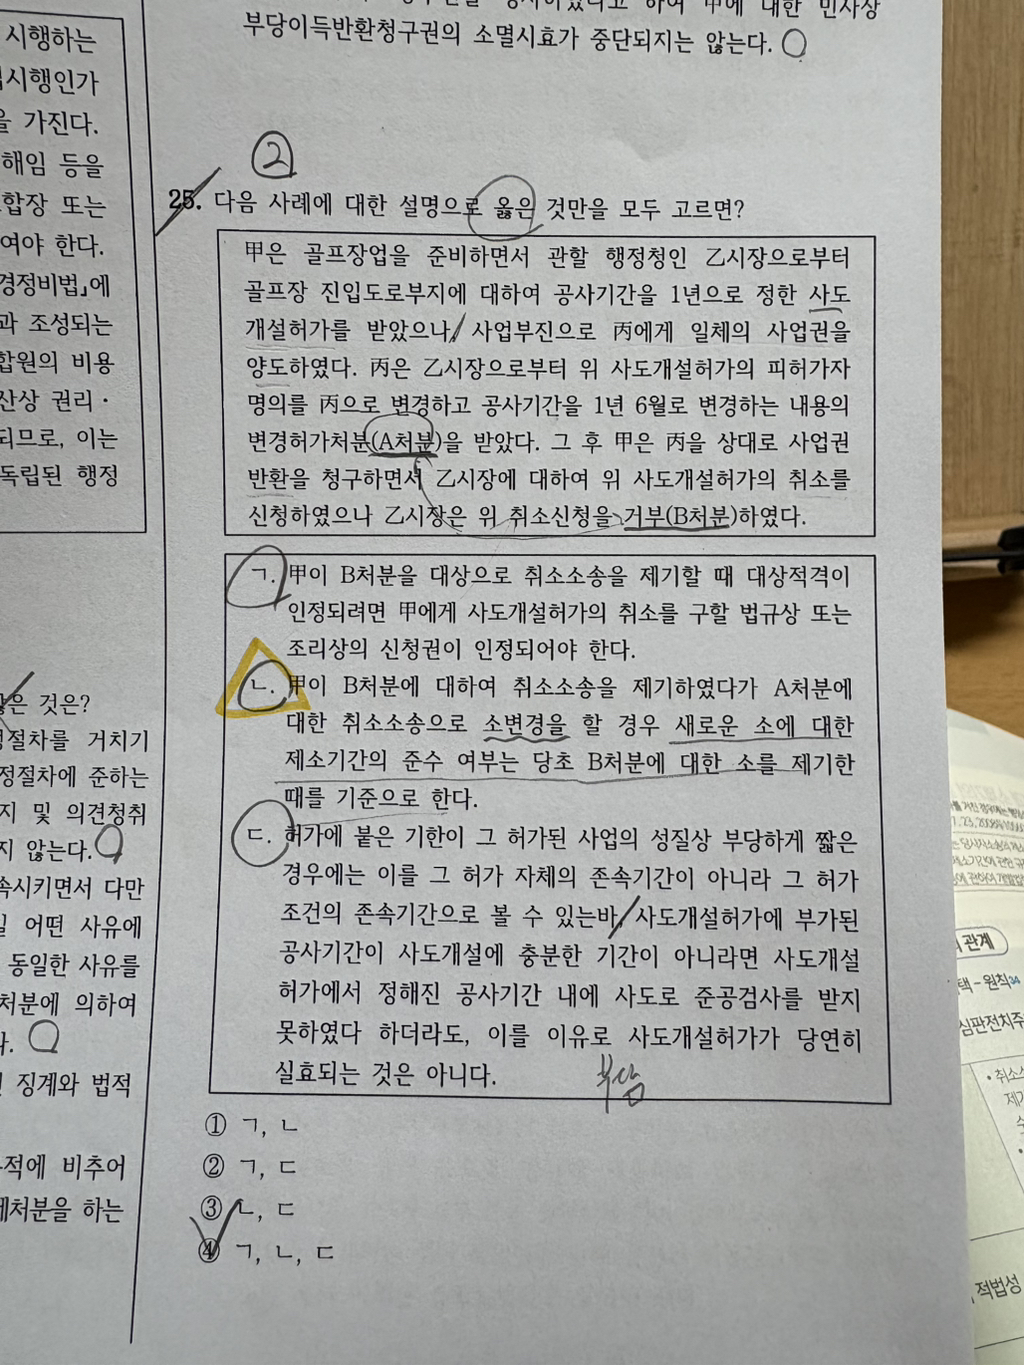 시행하는
시행인가
을 가진다.
해임 등을
합장 또는
여야 한다.
경정비법」에
과 조성되는
합원의 비용
산상 권리·
되므로, 이는
독립된 행정
은 것은?
정절차를 거치기
정절차에 준하는
지 및 의견청취
지 않는다.
속시키면서 다만
일 어떤 사유에
동일한 사유를
처분에 의하여
징계와 법적
적에 비추어
제처분을 하는
하여 甲에 대한 민사상
부당이득반환청구권의 소멸시효가 중단되지는 않는다.
2
25. 다음 사례에 대한 설명으로 옳은 것만을 모두 고르면?
甲은 골프장업을 준비하면서 관할 행정청인 乙시장으로부터
골프장 진입도로부지에 대하여 공사기간을 1년으로 정한 사도
개설허가를 받았으나, 사업부진으로 丙에게 일체의 사업권을
양도하였다. 丙은 乙시장으로부터 위 사도개설허가의 피허가자
명의를 丙으로 변경하고 공사기간을 1년 6월로 변경하는 내용의
변경허가처분(A처분)을 받았다. 그 후 甲은 丙을 상대로 사업권
반환을 청구하면서 乙시장에 대하여 위 사도개설허가의 취소를
신청하였으나 乙시장은 위 취소신청을 거부(B처분)하였다.
ㄱ. 甲이 B처분을 대상으로 취소소송을 제기할 때 대상적격이
인정되려면 甲에게 사도개설허가의 취소를 구할 법규상 또는
조리상의 신청권이 인정되어야 한다.
ㄴ. 甲이 B처분에 대하여 취소소송을 제기하였다가 A처분에
대한 취소소송으로 소변경을 할 경우 새로운 소에 대한
제소기간의 준수 여부는 당초 B처분에 대한 소를 제기한
때를 기준으로 한다.
ㄷ. 허가에 붙은 기한이 그 허가된 사업의 성질상 부당하게 짧은
경우에는 이를 그 허가 자체의 존속기간이 아니라 그 허가
조건의 존속기간으로 볼 수 있는바, 사도개설허가에 부가된
공사기간이 사도개설에 충분한 기간이 아니라면 사도개설
허가에서 정해진 공사기간 내에 사도로 준공검사를 받지
못하였다 하더라도, 이를 이유로 사도개설허가가 당연히
실효되는 것은 아니다.
부담
① ㄱ, ㄴ
② ㄱ, ㄷ
③ ㄴ, ㄷ
④ ㄱ, ㄴ, ㄷ
관계
택 - 원칙
심판전치주
• 취소
제기
적법성